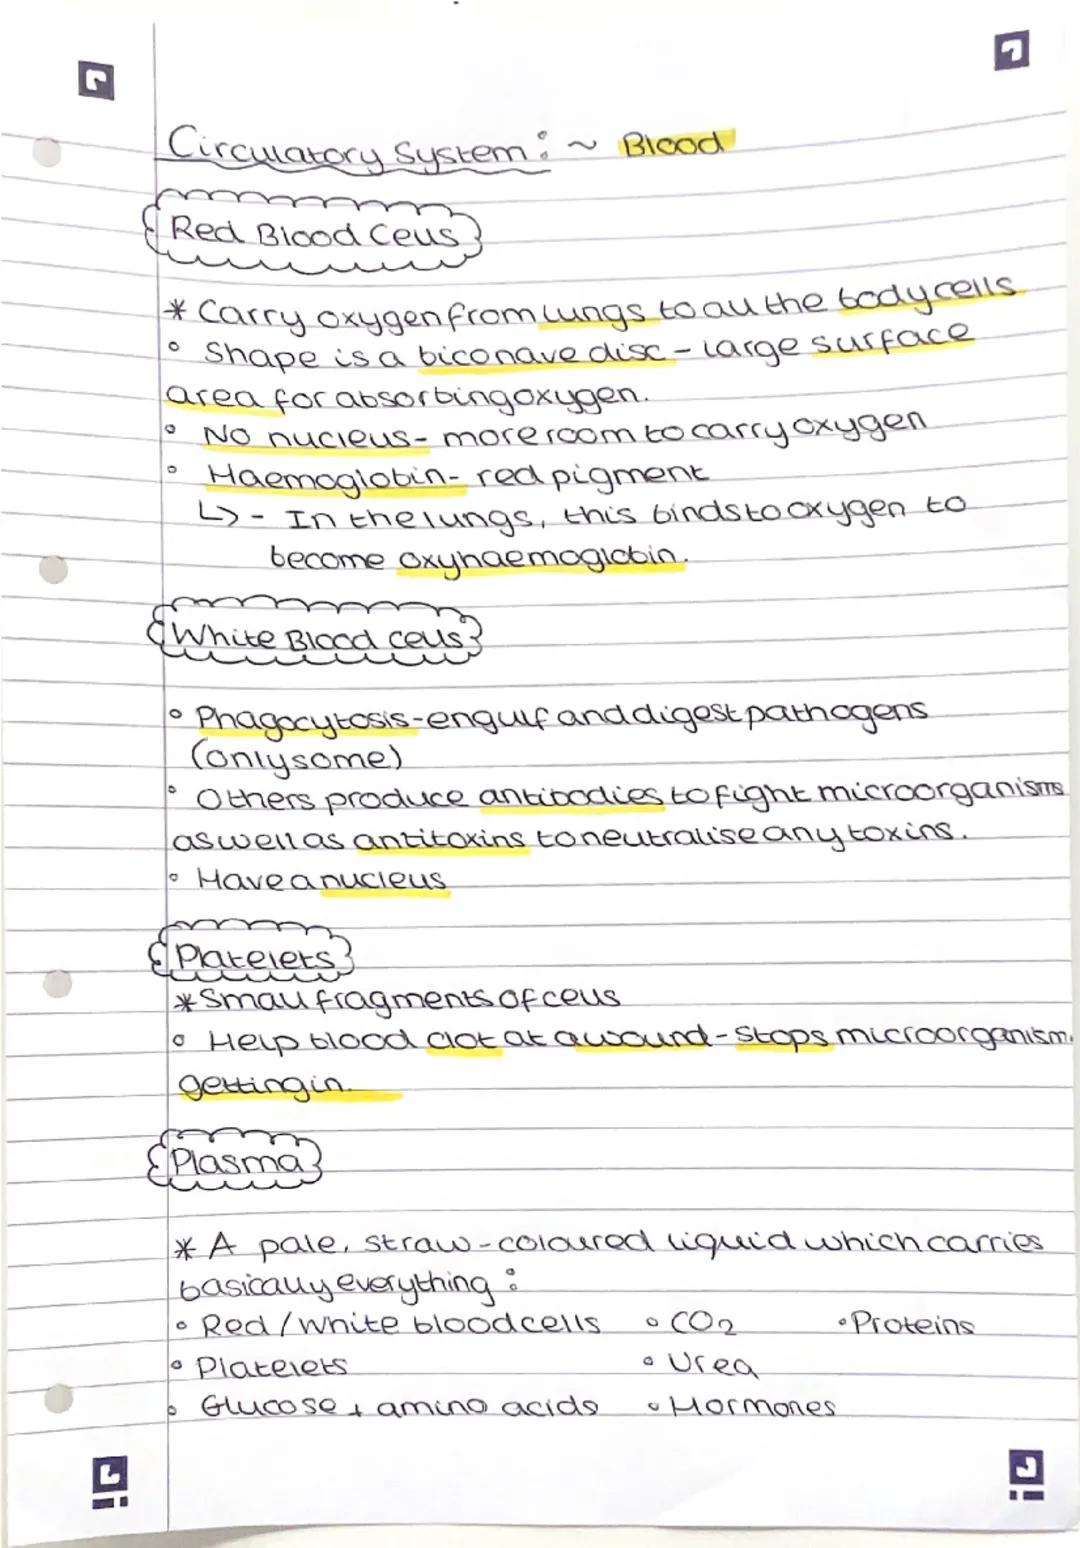 Circulatory System: ~ Blood
Red Blood Cells
* Carry oxygen from lungs to all the body cells
° Shape is a biconave disc - large surface
area for absorbing oxygen.
° No nucleus - more room to carry oxygen
° Haemoglobin - red pigment
↳ - In the lungs, this binds to oxygen to
become oxyhaemoglobin.
White Blood cells
° Phagocytosis - engulf and digest pathogens
(only some)
° Others produce antibodies to fight microorganisms
as well as antitoxins to neutralise any toxins.
° Have a nucleus
Platelets
* Small fragments of cells
° Help blood clot at a wound - stops microorganism
getting in.
Plasma
* A pale, straw-coloured liquid which carries
basically everything:
° Red/white blood cells ° CO2 ° Proteins
° Platelets ° Urea
° Glucose + amino acids ° Hormones